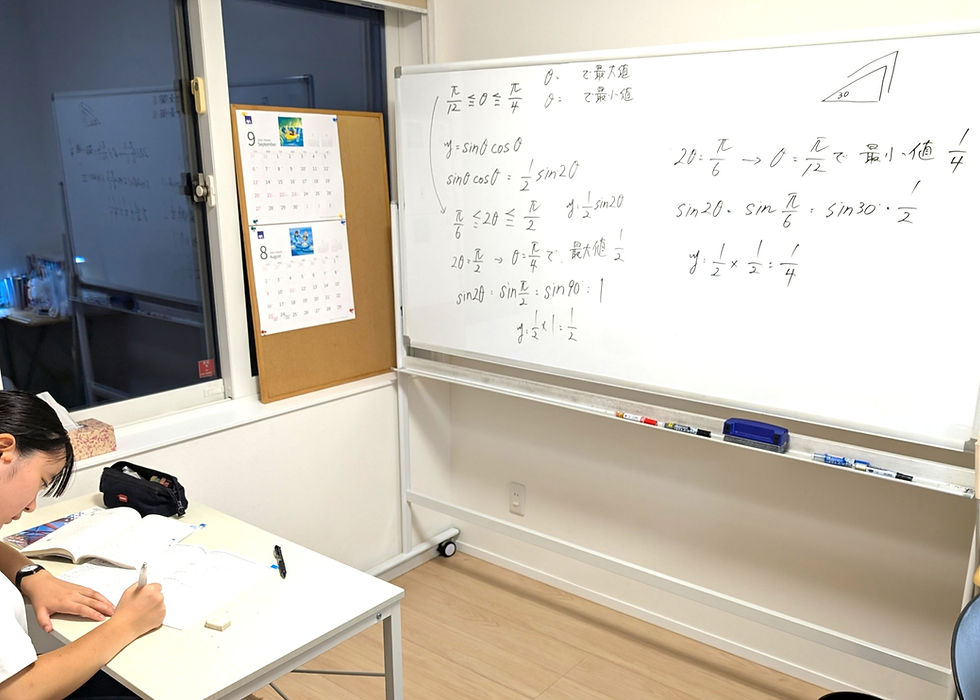 π/12 ≦ θ ≦ π/4
θ= で最大値
θ= で最小値
y=sinθcosθ
sinθcosθ = 1/2 sin2θ
π/6 ≦ 2θ ≦ π/2 y=1/2 sin2θ
2θ=π/2 → θ=π/4 で、最大値 1/2
sin2θ = sin π/2 = sin90 = 1
y=1/2×1=1/2
30
2θ=π/6 → θ=π/12 で 最小値 1/4
sin2θ = sin π/6 = sin30 = 1/2
y=1/2 × 1/2 = 1/4
9
September
8
August